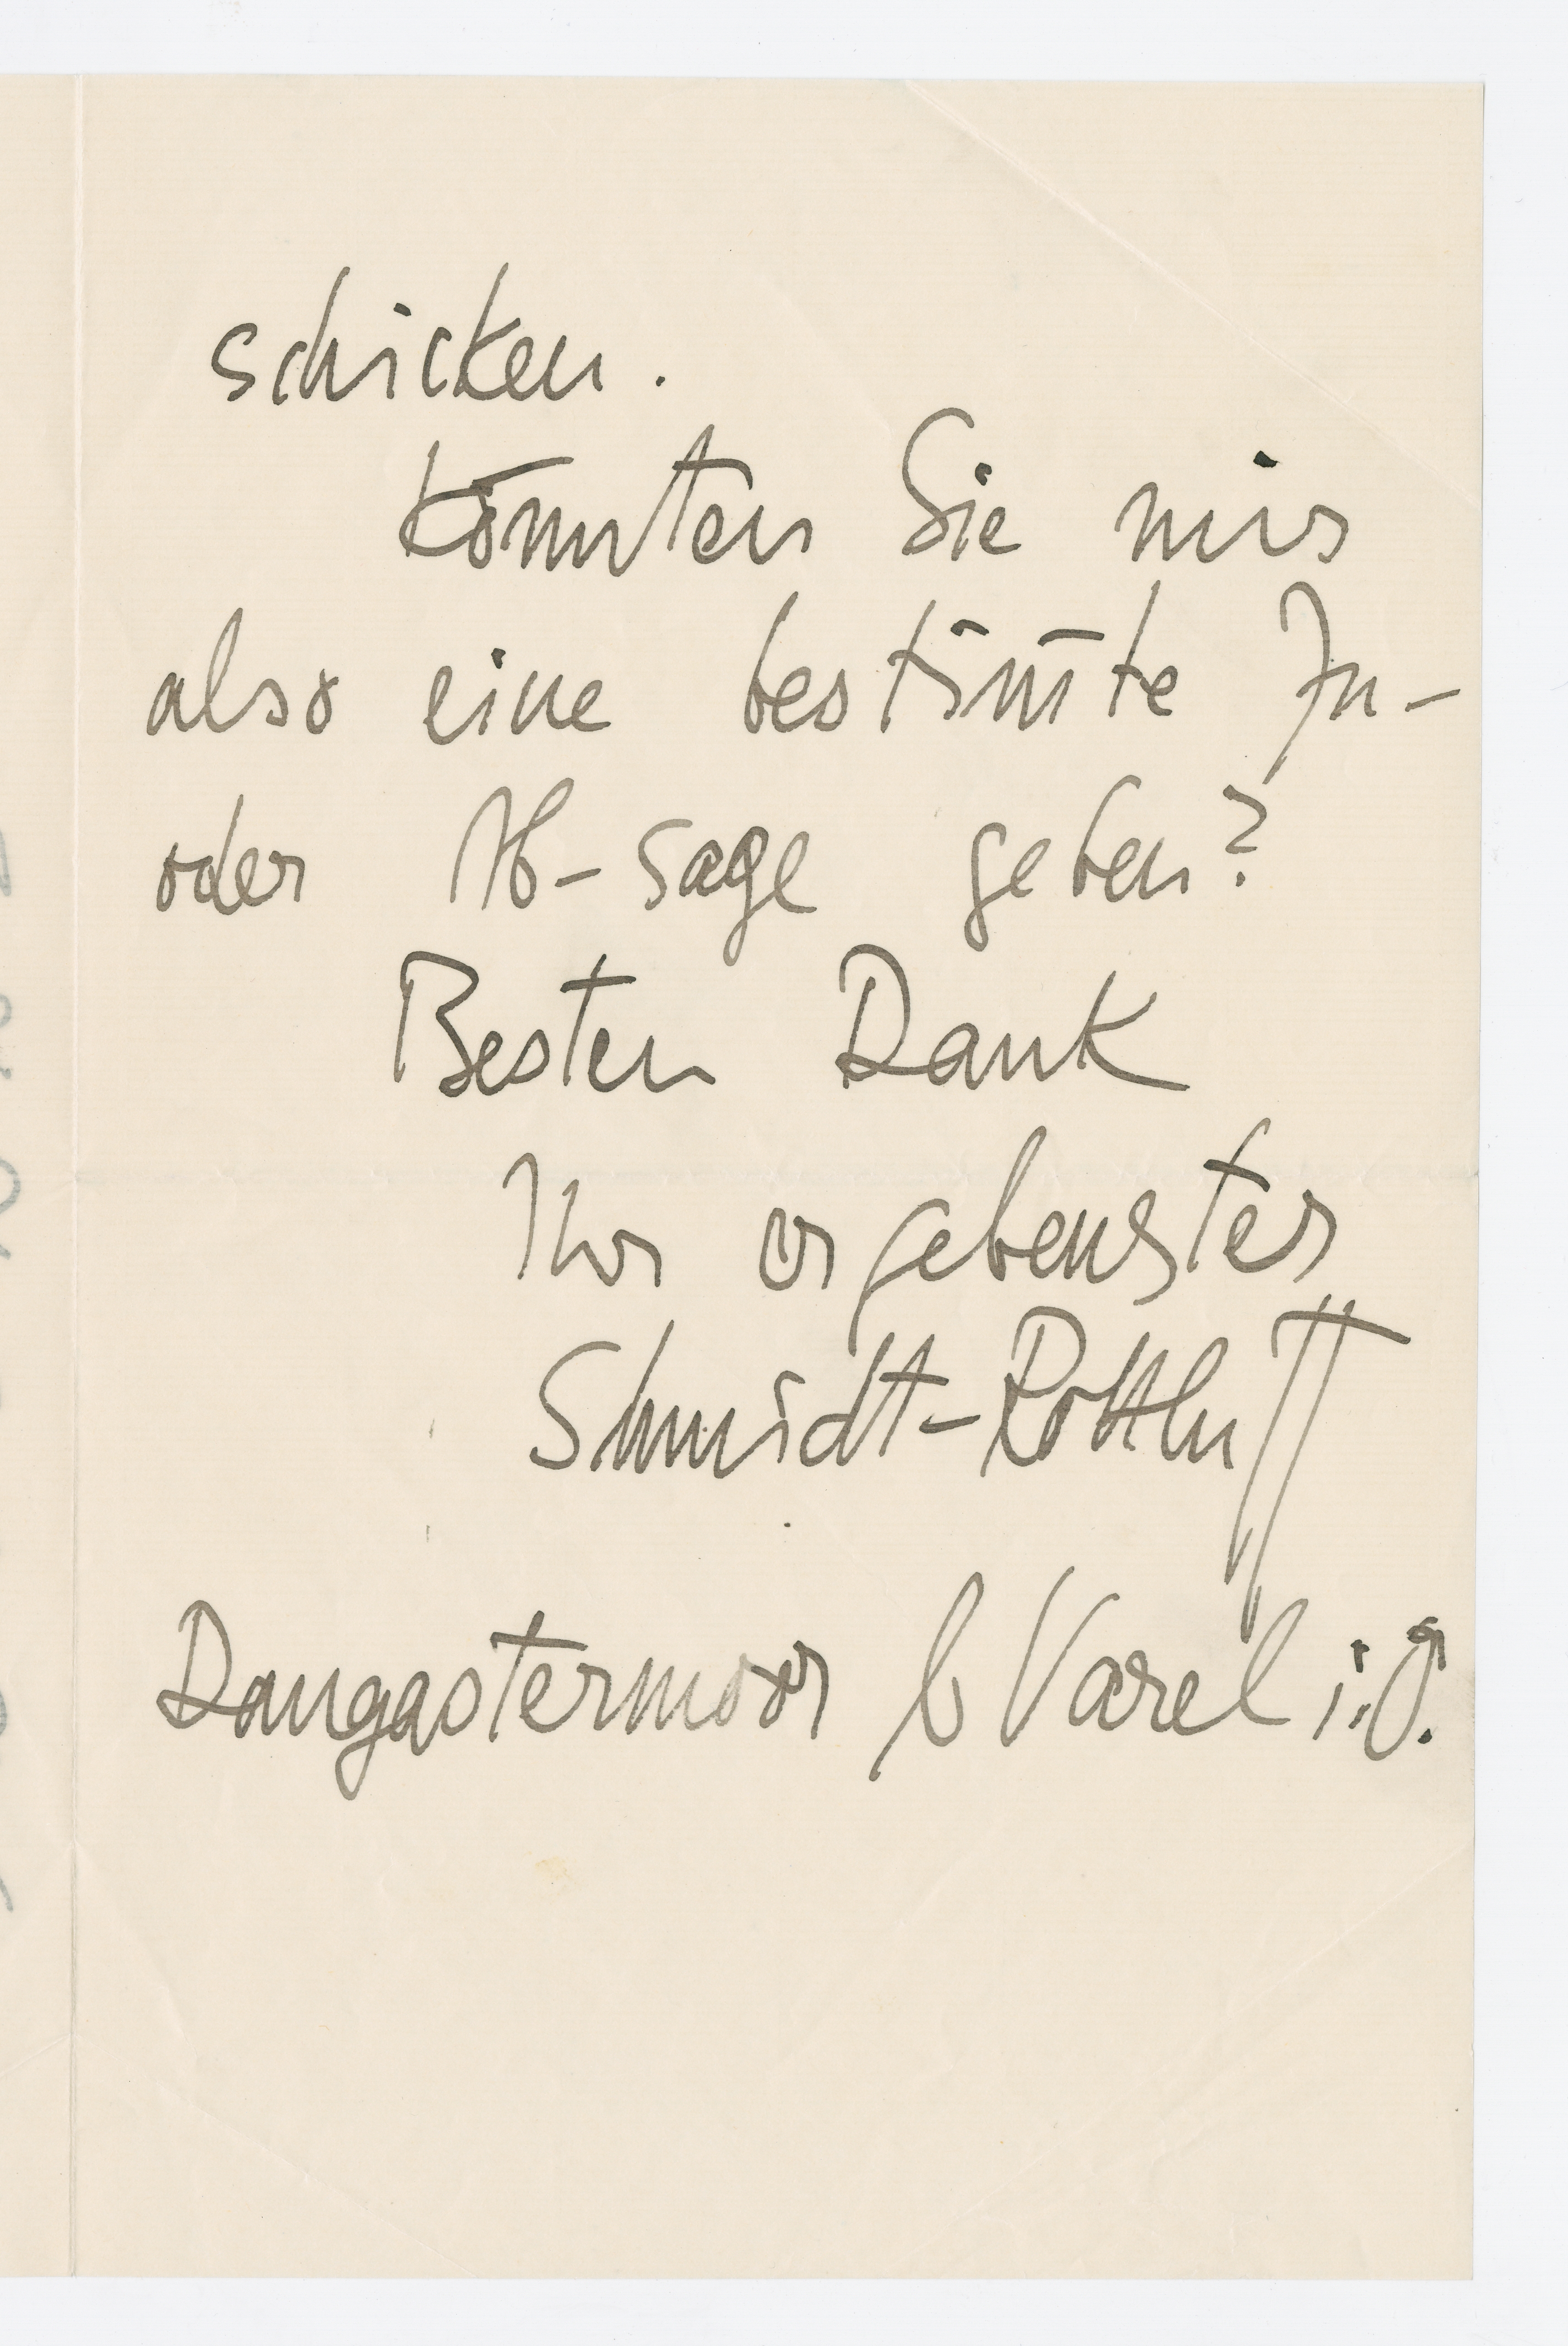 schicken.
Könnten Sie mir
also eine bestim̅te Zu-
oder Ab-sage geben?
Besten Dank
Ihr ergebenster
Schmidt-Rottluff
Dangastermoor b Varel i. O.